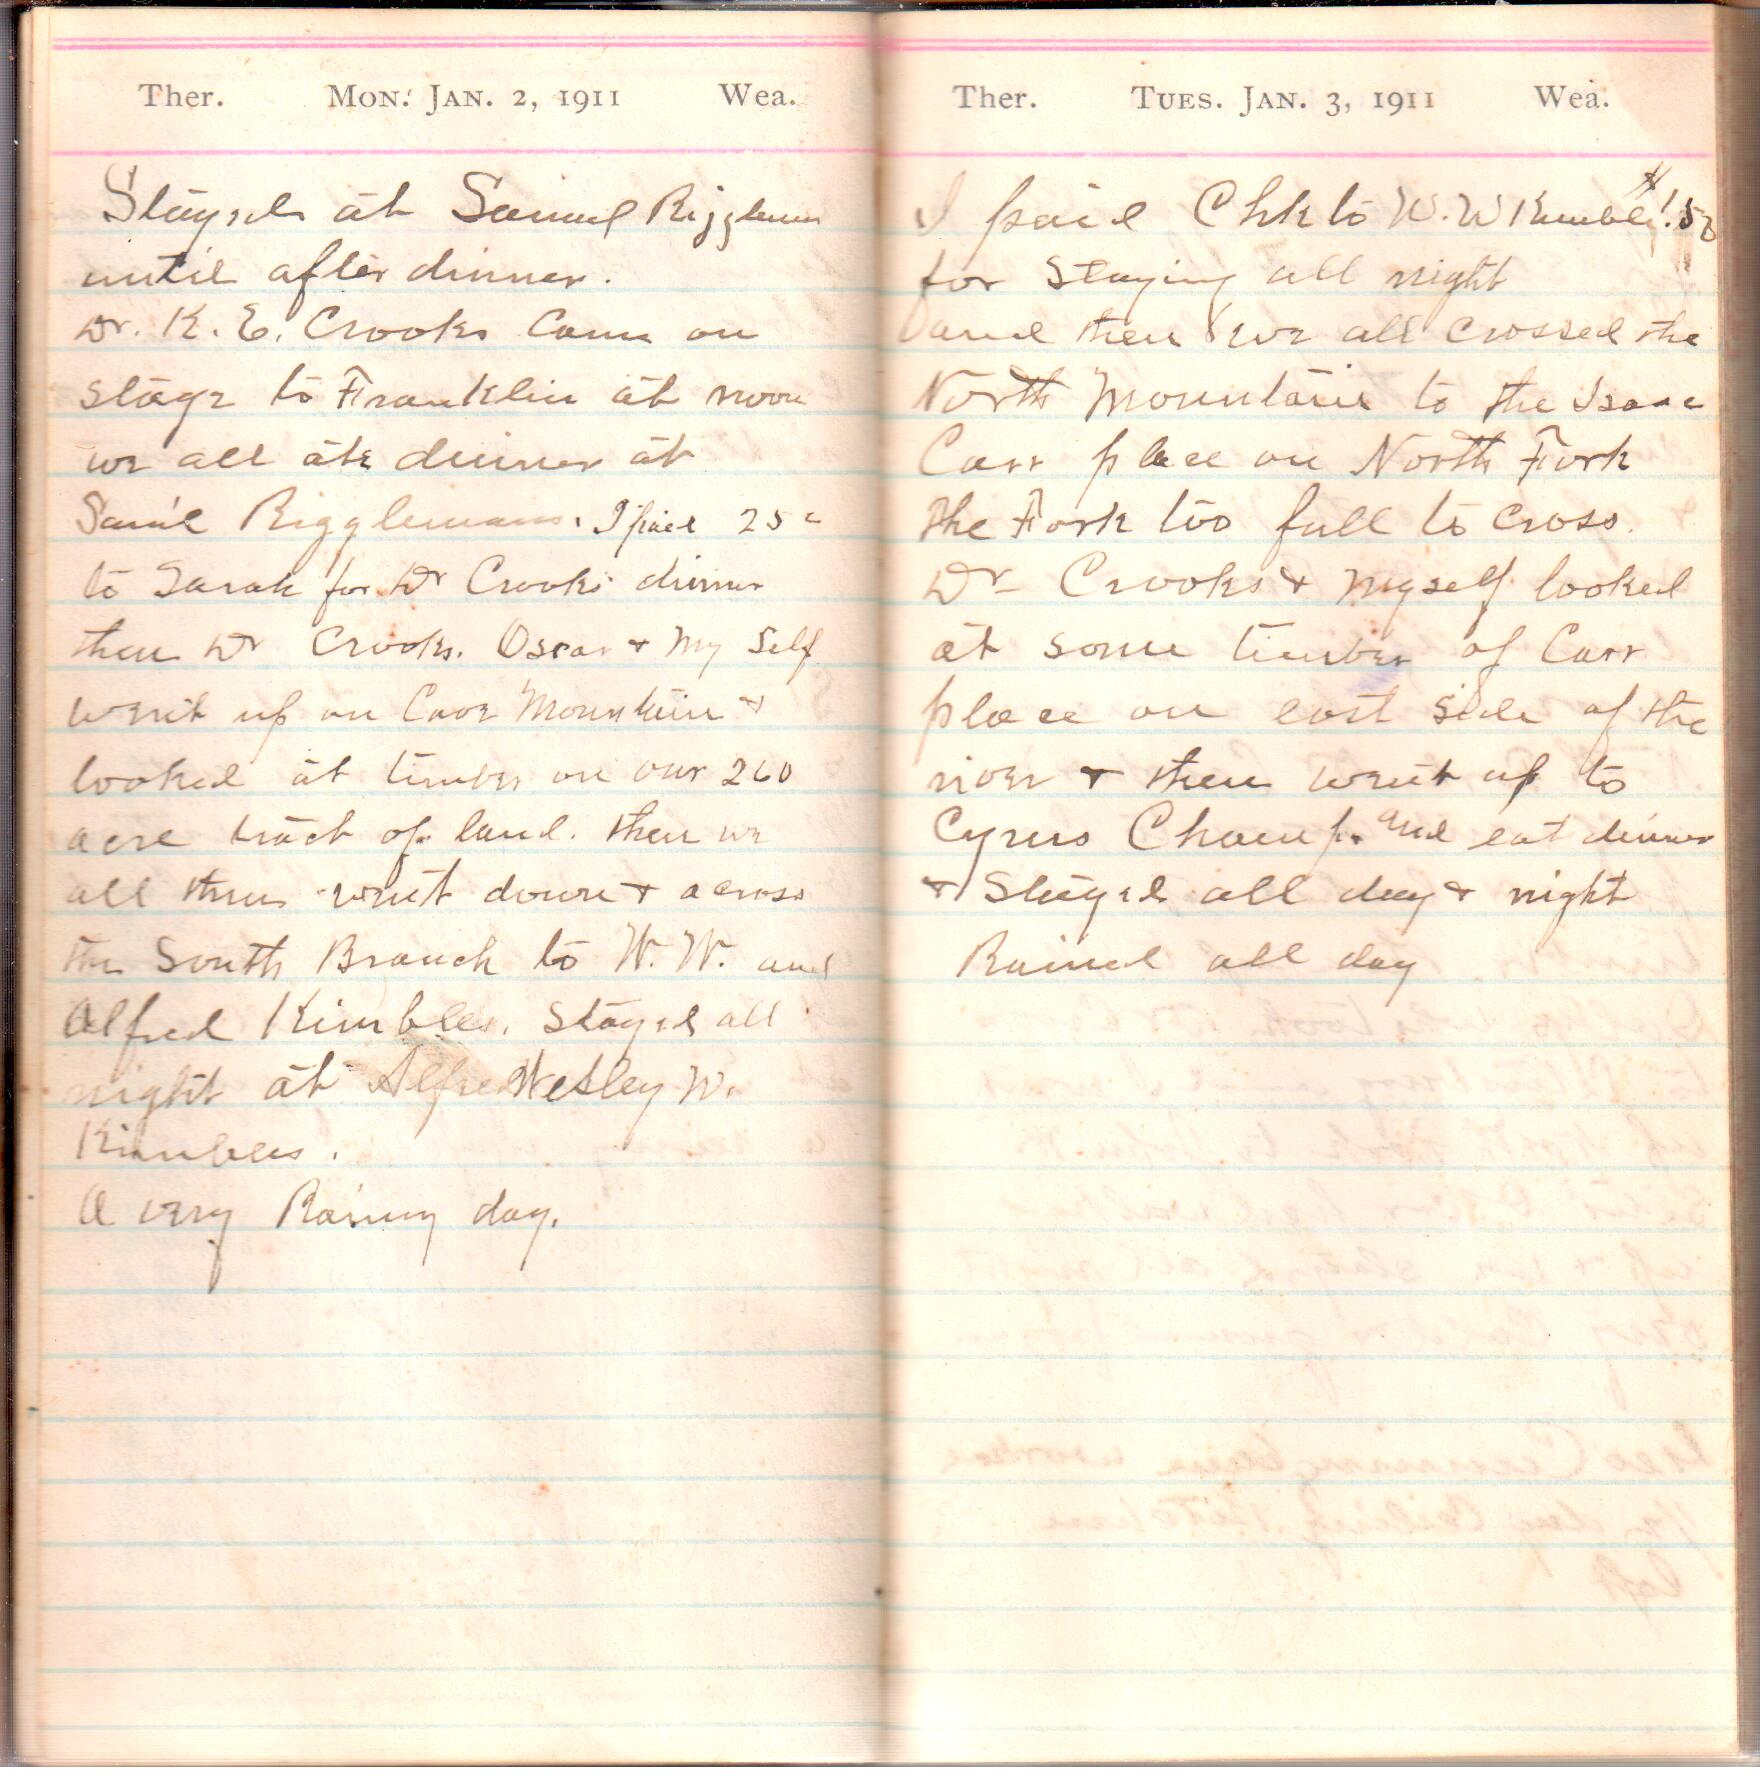 Ther. Mon. Jan. 2, 1911 Wea.
Stayed at Samuel Riggleman
until after dinner.
Dr. K. E. Crooks Came on
stage to Franklin at noon
we all ate dinner at
Sam'l Rigglemans. I paid 25c
to Sarah for Dr Crooks dinner
then Dr Crooks. Oscar & My Self
went up on Cave Mountain &
looked at timber on our 260
acre tract of land. then we
all then went down & across
the South Branch to W. W. and
Alfred Kimbles. Stayed all
night at Wesley W.
Kimbles.
A very Rainy day.
Ther. Tues. Jan. 3, 1911 Wea.
I paid Chk to W. W Kimble $1.50
for Staying all night
and then we all crossed the
North Mountain to the Isaac
Carr place on North Fork
the Fork too full to cross.
Dr Crooks & myself looked
at some timber of Carr
place on east side of the
river & then went up to
Cyrus Champ. and eat dinner
& Stayed all day & night
Rained all day